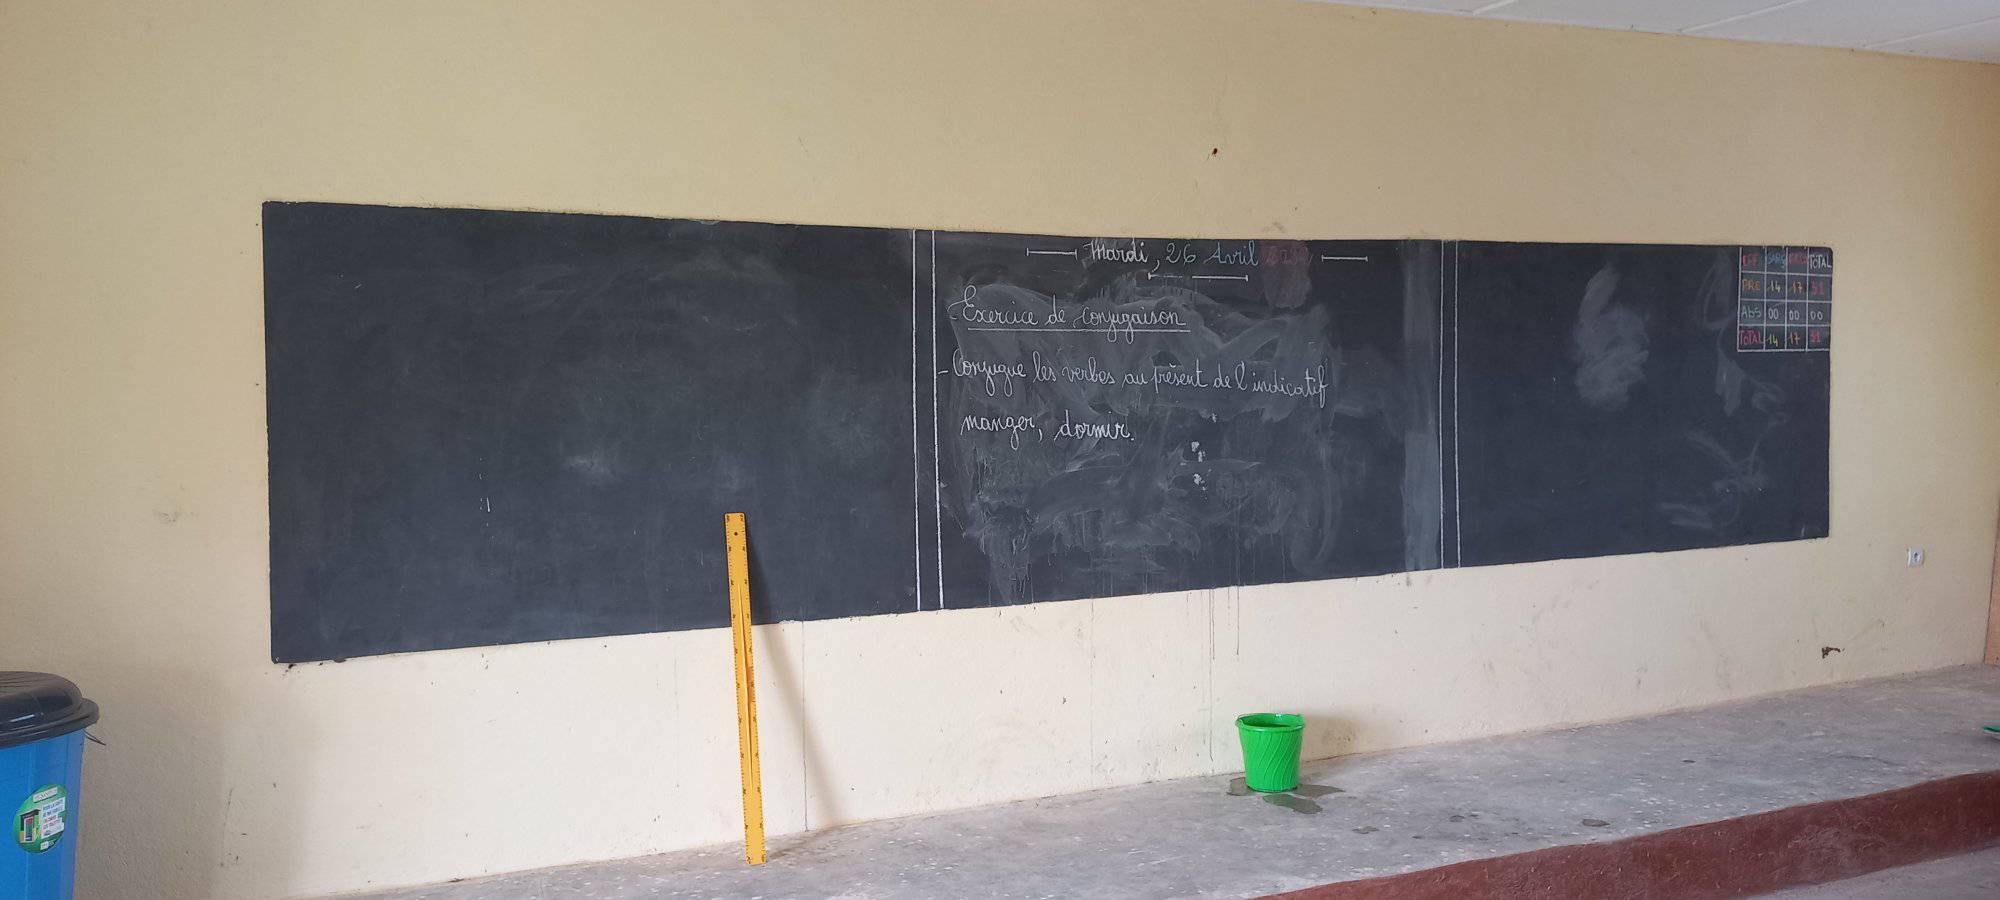 Mardi, 26 Avril
- Exercice de conjugaison
- Conjugue les verbes au présent de l'indicatif
manger, dormir.
EFF GARÇ TOTAL
PRE 14 17 31
Abs 00 00 00
TOTAL 14 17 31